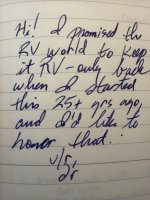 Hi! I promised the
RV world to keep
it RV-only back
when I started
this 25+ yrs ago,
and I'd like to
honor that.
v/r,